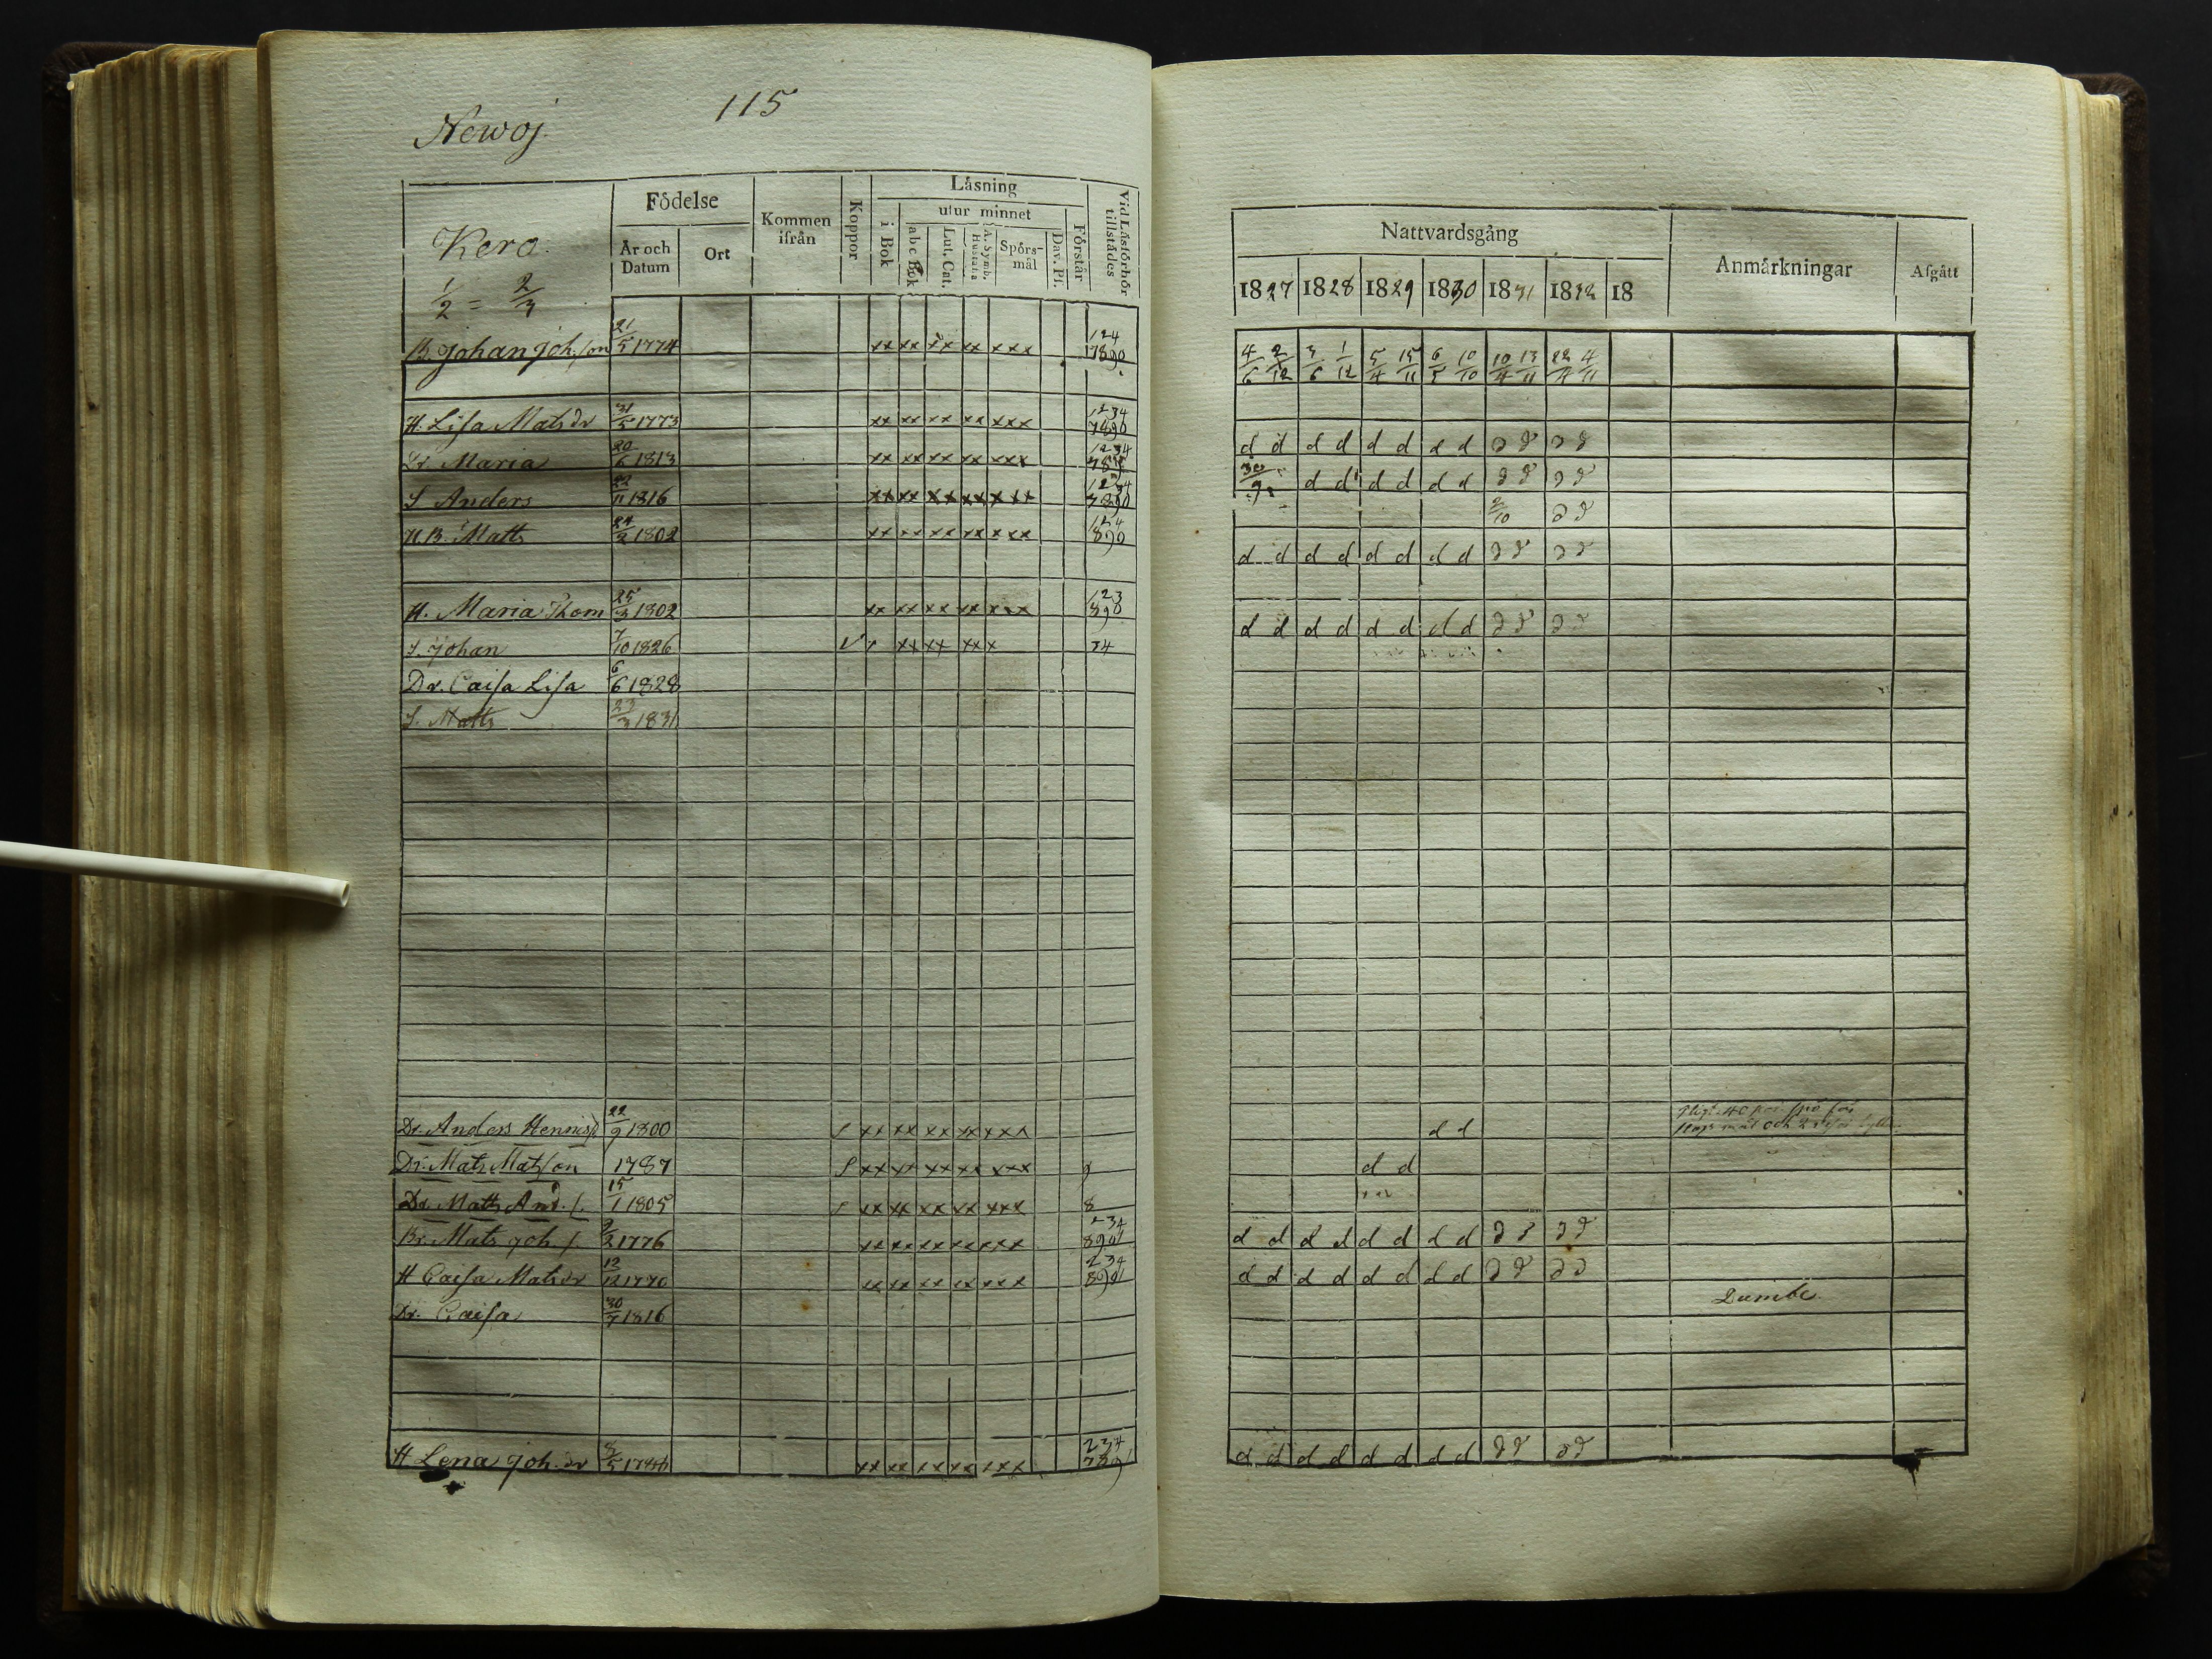 115
Newoj.
Kero.
1/2 = 2/3
Födelse
År och Datum
Ort
Kommen ifrån
Koppor
Läsning
i Bok
utur minnet
abc Bok
Lut. Cat.
A. Symb. Hustafla
Spörs-mål
Dav. Ps.
Förstår
Vid Läsförhör tillstädes
Nattvardsgång
1827 1828 1829 1830 1831 1832 18
Anmärkningar
Afgått
B. Johan Joh.son 21/5 1774 xx xx xx xx xxx 124 7890 4/6 2/12 3/6 1/12 5/4 15/11 6/5 10/10 10/4 13/11 22/4 4/11
H. Lisa Matsdr 31/5 1773 xx xx xx xx xxx 1234 7890 d d d d d d d d d d d d
Dr. Maria 20/6 1813 xx xx xx xx xxx 1234 30/9 d d d d d d d d d d
S Anders 22/11 1816 xx xx xx xx xxx 1234 7890 2/10 d d
H.B. Matts 24/2 1802 xx xx xx xx xxx 124 890 d d d d d d d d d d d d
H. Maria Thom 25/3 1802 xx xx xx xx xxx 123 890 d d d d d d d d d d d d
S. Johan 7/10 1826 xx xx xxx 34
Dr. Caisa Lisa 6/6 1828
S. Matts 23/3 1831
Dr. Anders Henriss. 22/9 1800 xx xx xx xx xxx d d
och 2
Dr. Mats Matsson 1787 xx xx xx xx xxx 9 d d
Dr. Matts And. s. 15/1 1805 xx xx xx xx xxx 8
Br. Mats Joh. s. 2/2 1776 xx xx xx xx xxx 234 8901 d d d d d d d d d d d d
H Caisa Matsdr 12/12 1770 xx xx xx xx xxx 234 8901 d d d d d d d d d d d d
Dr. Caisa 30/7 1816 Dumbe.
H Lena Joh. dr xx xx xx xx xxx 234 789 d d d d d d d d d d d d